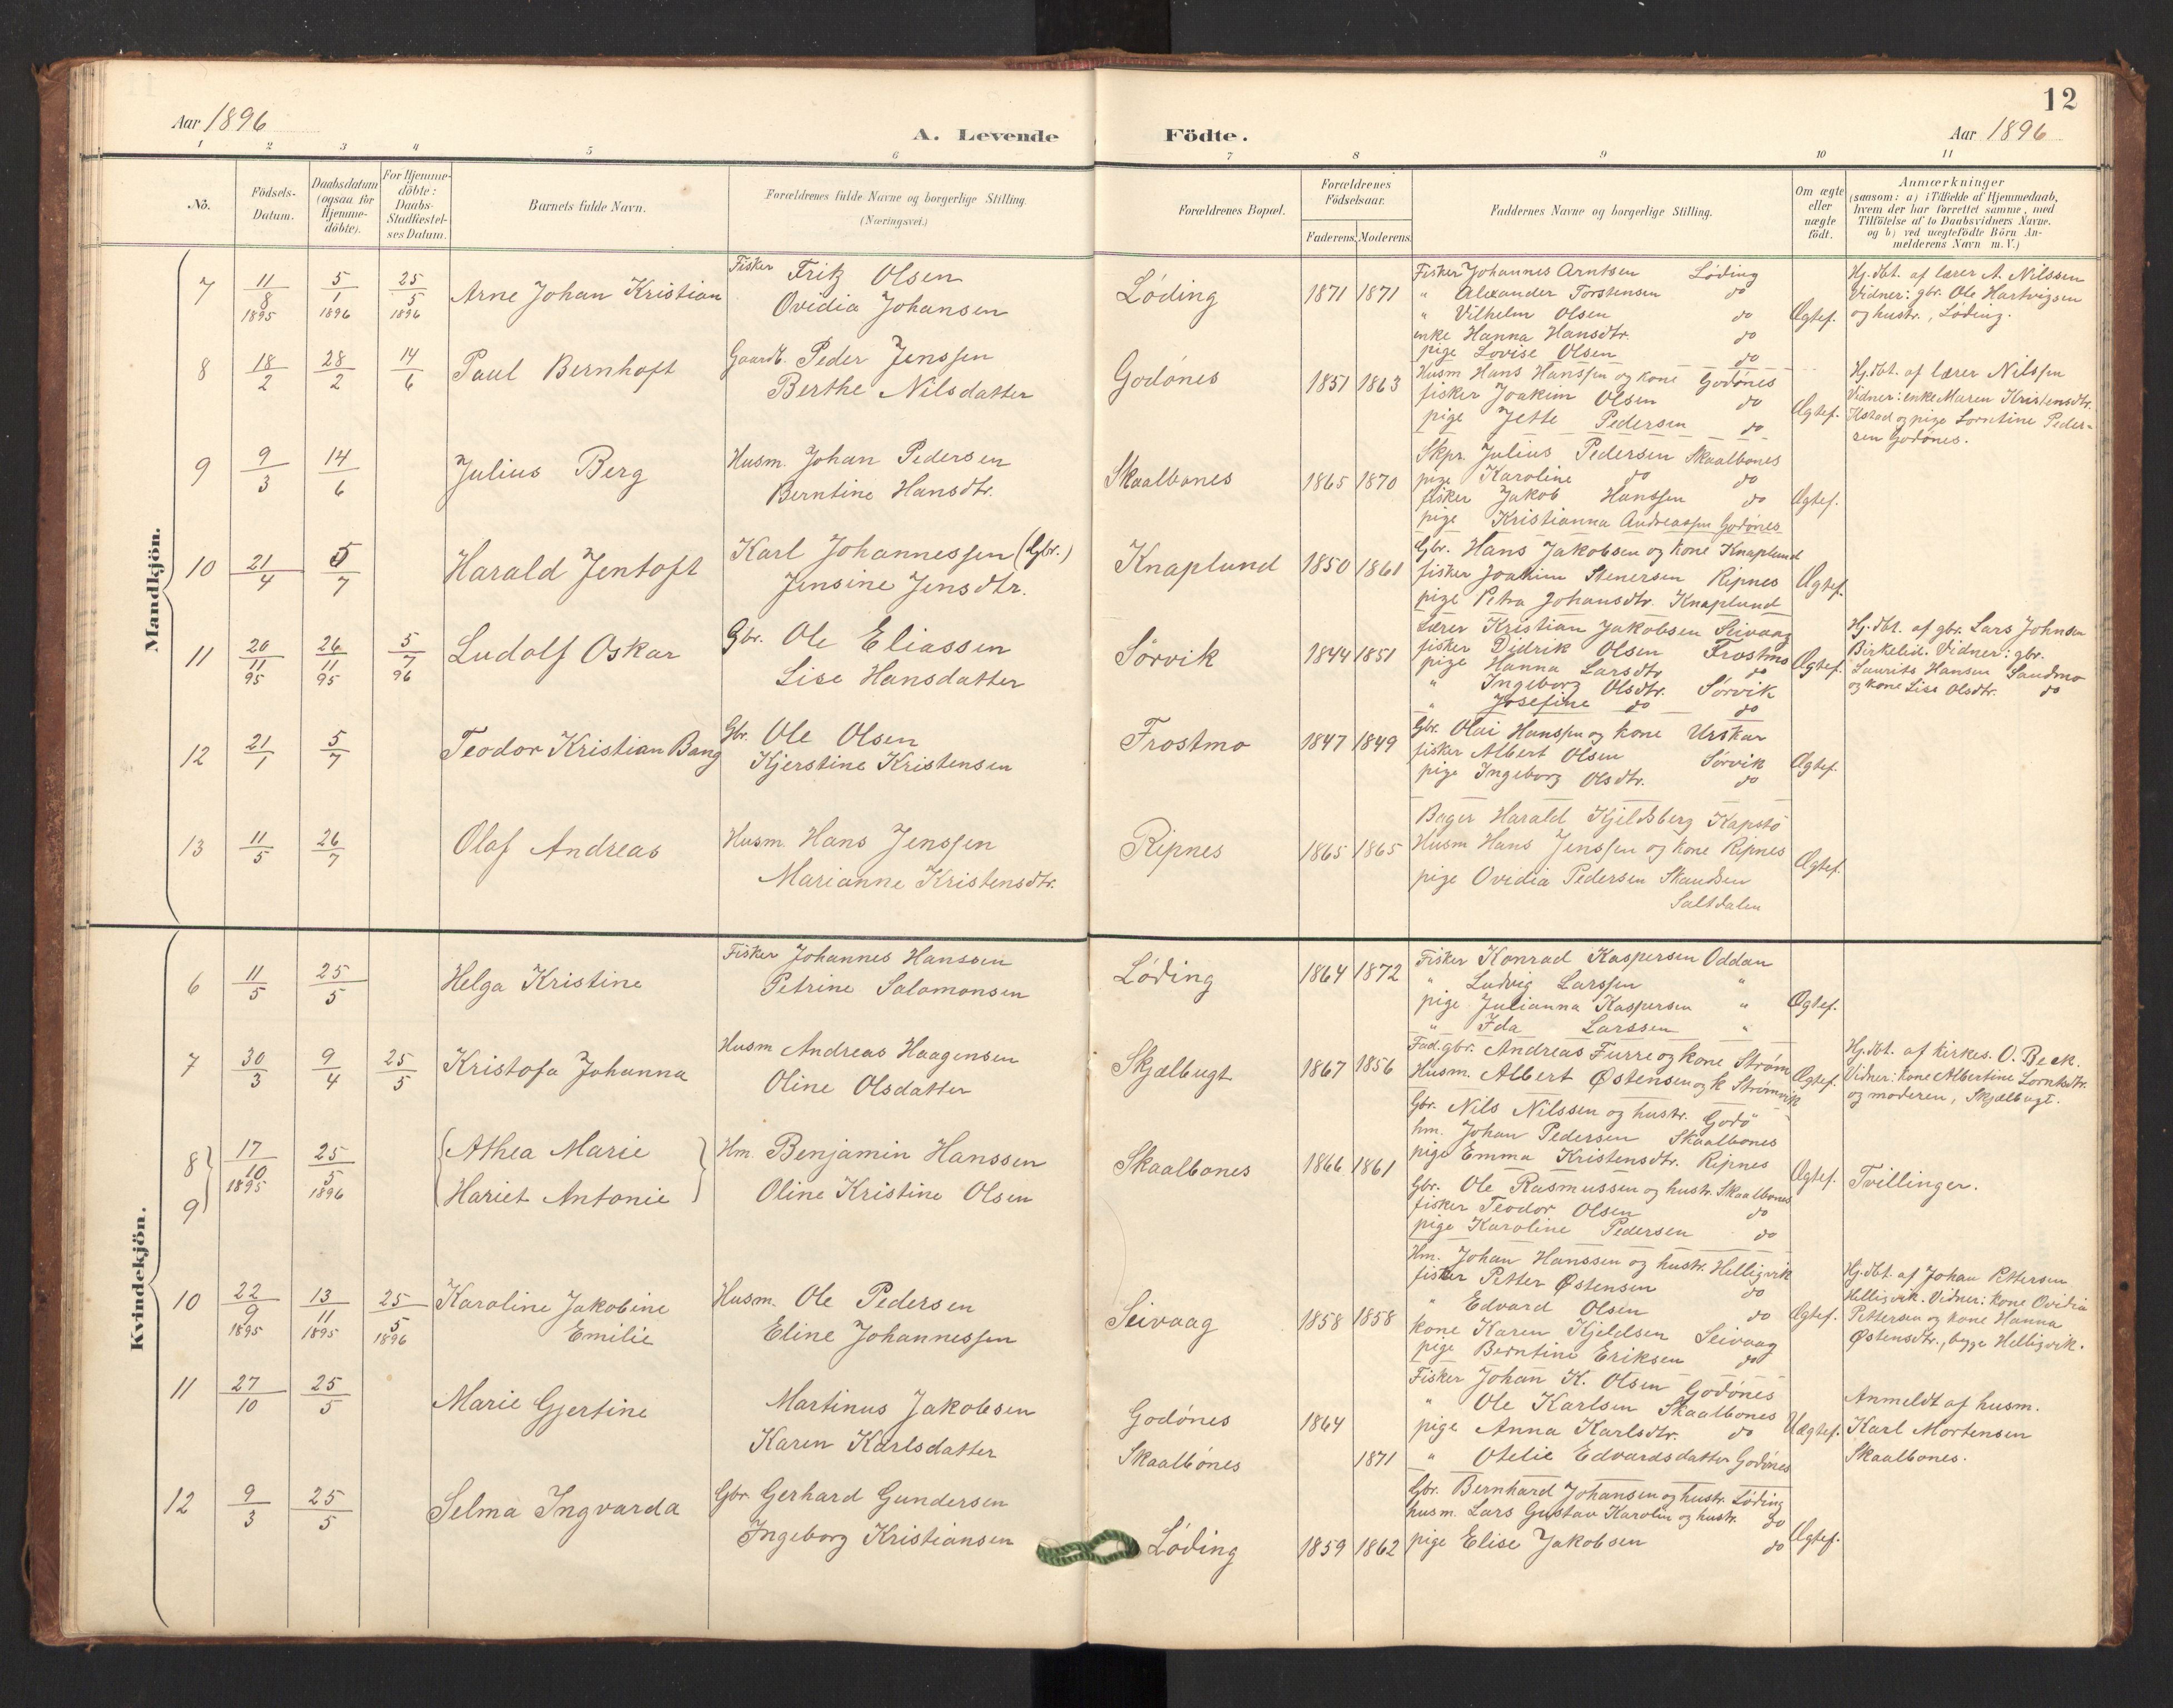 12
Aar 1896
A. Levende Födte.
Aar 1896
1 2 3 4 5 6 7 8 9 10 11
No.
Födsels-Datum.
Daabsdatum (ogsaa for Hjemme-döbte).
For Hjemme-döbte: Daabs-Stadfæstel-ses Datum.
Barnets fulde Navn.
Forældrenes fulde Navne og borgerlige Stilling.
(Næringsvei.)
Forældrenes Bopæl.
Forældrenes Födselsaar.
Faderens. Moderens.
Faddernes Navne og borgerlige Stilling.
Om ægte eller uægte födt.
Anmærkninger
(saasom: a) i Tilfælde af Hjemmedaab, hvem der har forrettet samme, med Tilföielse af to Daabsvidners Navne. og b) ved uægtefödte Börn An-melderens Navn m. V.)
Mandkjön.
7 11/8 1895 5/1 1896 25/5 1896 Arne Johan Kristian
Fisker Fritz Olsen
Ovidia Johansen
Løding 1871 1871
Fisker Johannes Arntsen Løding
" Alexander Torstensen do
" Vilhelm Olsen do
enke Hanna Hansdtr. do
pige Lovise Olsen do
Ægtef.
Hj.dbt. af lærer A. Nilssen
Vidner: gbr. Ole Hartvigsen
og hustr., Løding.
8 18/2 28/2 14/6 Paul Bernhoft
Gaardb. Peder Jenssen
Berthe Nilsdatter
Godønes 1851 1863
Husm Hans Hanssen og kone Godønes
fisker Joakim Olsen do
pige Jette Pedersen do
Ægtef.
Hj.dbt. af lærer Nilssen
Vidner: enke Maren Kristensdtr.
Ilstad og pige Lorntine Peder-
sen Godønes.
9 9/3 14/6 Julius Berg
Husm. Johan Pedersen
Berntine Hansdtr.
Skaalbones 1865 1870
Skpr. Julius Pedersen Skaalbones
pige Karoline do do
fisker Jakob Hanssen do
pige Kristianna Andreassen Godønes
Ægtef.
10 21/4 5/7 Harald Jentoft
Karl Johannessen (Gbr.)
Jensine Jensdtr.
Knaplund 1850 1861
Gbr. Hans Jakobsen og kone Knaplund
fisker Joakim Stenersen Ripnes
pige Petra Johansdtr. Knaplund
Ægtef.
11 20/11 95 26/11 95 5/7 96 Ludolf Oskar
Gbr. Ole Eliassen
Lise Hansdatter
Sørvik 1844 1851
Lærer Kristian Jakobsen Seivaag
fisker Didrik Olsen Frostmo
pige Hanna Larsdtr do
" Ingeborg Olsdtr. Sørvik
" Josefine do do
Ægtef.
Hj.dbt. af gbr. Lars Johnsen
Birkelid. Vidner: gbr.
Laurits Hansen Sandmo
og kone Lise Olsdtr. do
12 21/1 5/7 Teodor Kristian Bang
Gbr. Ole Olsen
Kjerstine Kristensen
Frostmo 1847 1849
Gbr. Olai Hanssen og kone Urskar
fisker Albert Olsen Sørvik
pige Ingeborg Olsdtr. do
Ægtef.
13 11/5 26/7 Olaf Andreas
Husm. Hans Jenssen
Marianne Kristensdtr.
Ripnes 1865 1865
Bager Harald Kjeldsberg Kapstø
Husm Hans Jenssen og kone Ripnes
pige Ovidia Pedersen Skandsen
Saltdalen
Ægtef.
Kvindekjön.
6 11/5 25/5 Helga Kristine
Fisker Johannes Hanssen
Petrine Salomonsen
Løding 1864 1872
Fisker Konrad Kaspersen Oddan
" Ludvig Larssen "
pige Julianna Kaspersen "
" Ida Larssen "
Ægtef.
7 30/3 9/4 25/5 Kristofa Johanna
Husm Andreas Haagensen
Oline Olsdatter
Skjælbugt 1867 1856
Fad.gbr. Andreas Furre og kone Strøm
Husm. Albert Østensen og k Strømvik
Gbr. Nils Nilssen og hustr. Godø
Ægtef.
Hj.dbt. af kirkes. O. Beck.
Vidner: kone Albertine Lorntsdtr.
og moderen, Skjælbugt.
8 9 17/10 1895 25/5 1896 Athea Marie
Hariet Antonie
Hm. Benjamin Hanssen
Oline Kristine Olsen
Skaalbones 1866 1861
hm. Johan Pedersen Skaalbones
pige Emma Kristensdtr. Ripnes
Gbr. Ole Rasmussen og hustr. Skaalbones
fisker Teodor Olsen do
pige Karoline Pedersen do
Ægtef. Tvillinger.
10 22/9 1895 13/11 1895 25/5 1896 Karoline Jakobine
Emilie
Husm. Ole Pedersen
Eline Johannessen
Seivaag 1858 1858
Hm. Johan Hanssen og hustr. Helligvik
fisker Petter Østensen do
" Edvard Olsen do
kone Karen Kjeldsen Seivaag
pige Berntine Eriksen do
Ægtef.
Hj.dbt. af Johan Pettersen
Helligvik. Vidner: kone Ovidia
Pettersen og kone Hanna
Østensdtr., begge Helligvik.
11 27/10 25/5 Marie Gjertine
Martinus Jakobsen
Karen Karlsdatter
Godønes 1864
Skaalbønes 1871
Fisker Johan K. Olsen Godønes
" Ole Karlsen Skaalbones
pige Anna Karlsdtr. do
" Otelie Edvardsdatter Godønes
Uægtef.
Anmeldt af husm.
Karl Mortensen
Skaalbones.
12 9/3 25/5 Selma Ingvarda
Gbr. Gerhard Gundersen
Ingeborg Kristiansen
Løding 1859 1862
Gbr. Bernhard Johansen og hustr. Løding
husm. Lars Gustav Karolin og hustr. do
pige Elise Jakobsen do
Ægtef.